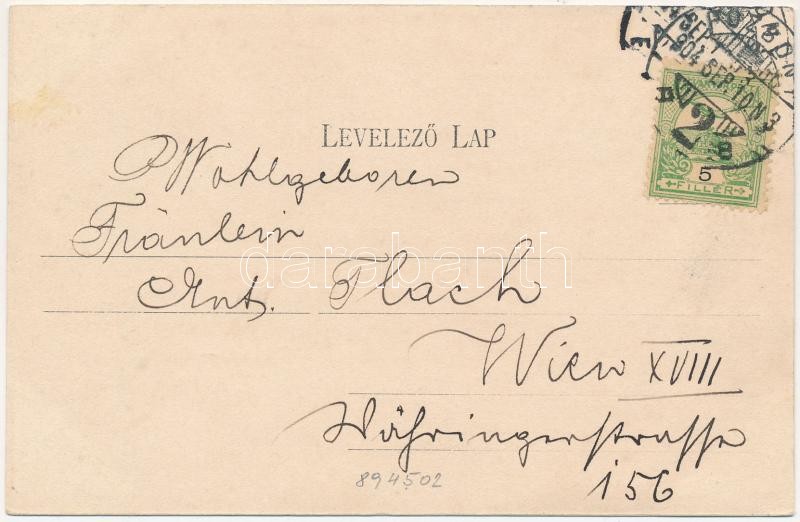 LEVELEZŐ LAP
P. Wohlgeboren
Fräulein
Ant. Flach
Wien XVIII
Währingerstrasse
156
894502
5
FILLÉR
darabanth